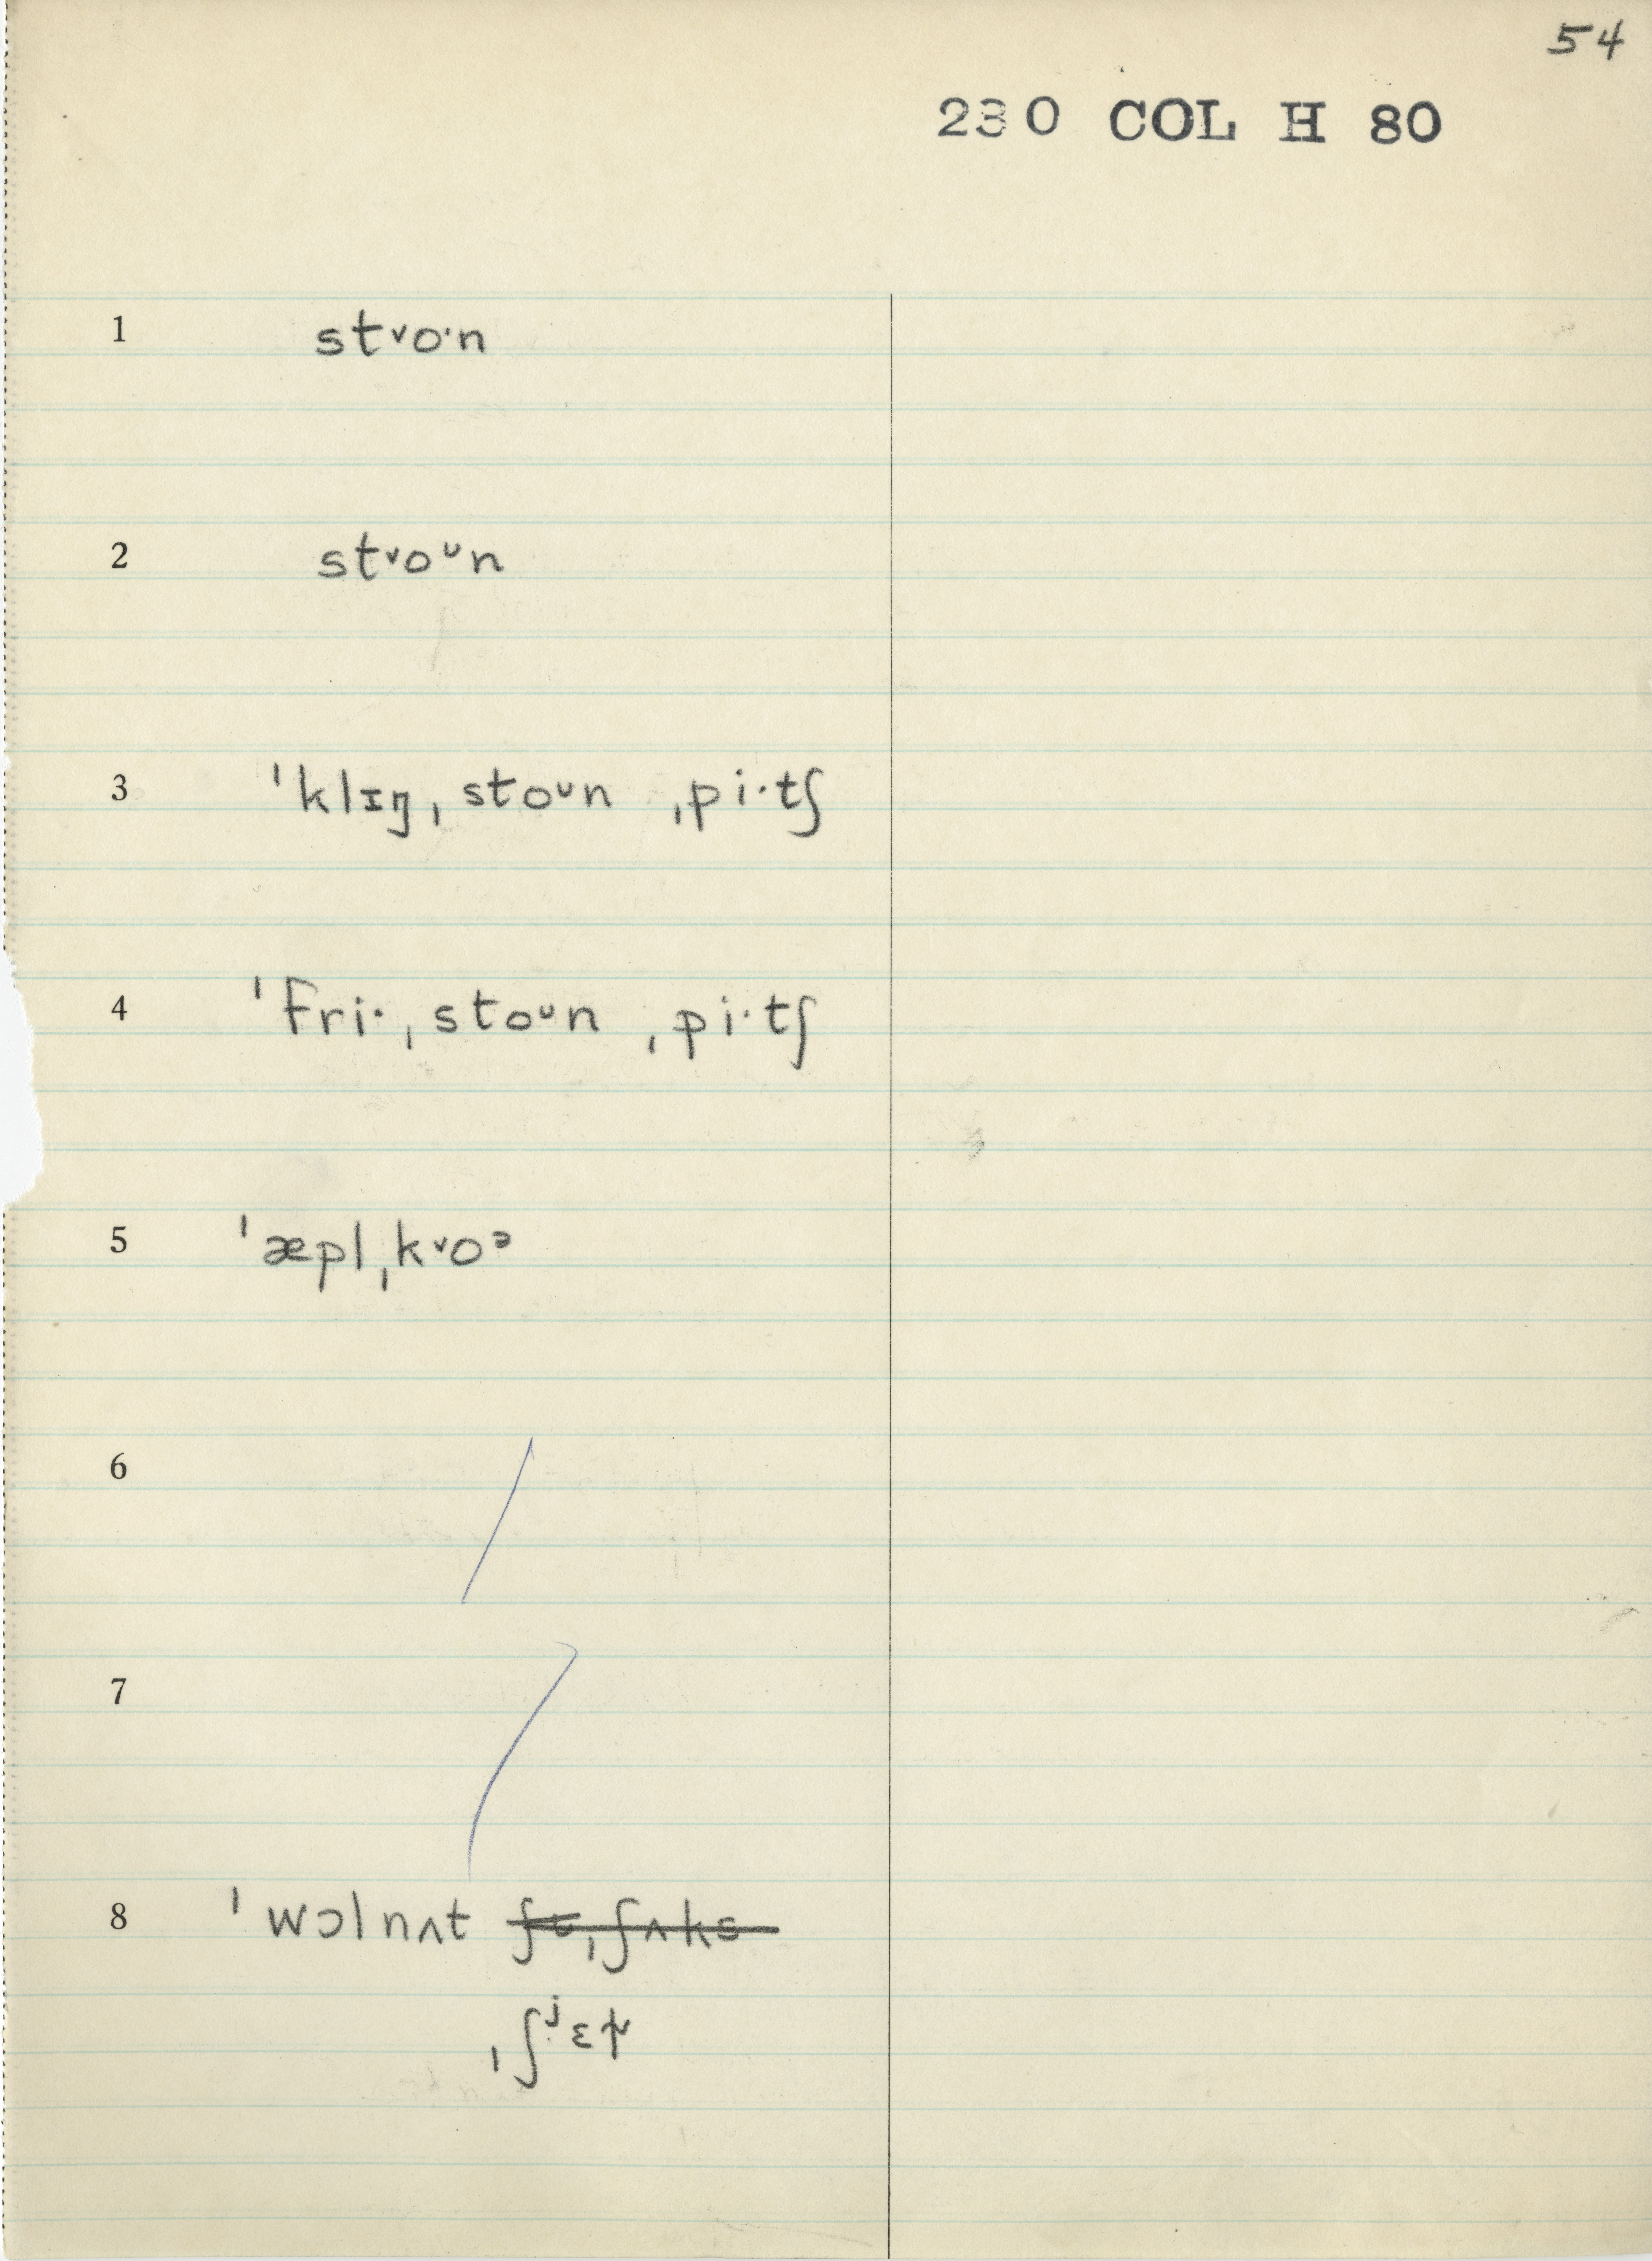 54
230 COL H 80
1 st˅o·n
2 st˅oᶷn
3 ˈklɪŋˌstoᶷn ˌpi·tʃ
4 ˈfri·ˌstoᶷn ˌpi·tʃ
5 ˈæplˌk˅oᵊ
6
7
8 ˈwɔlnʌt
ˌʃʲɛ